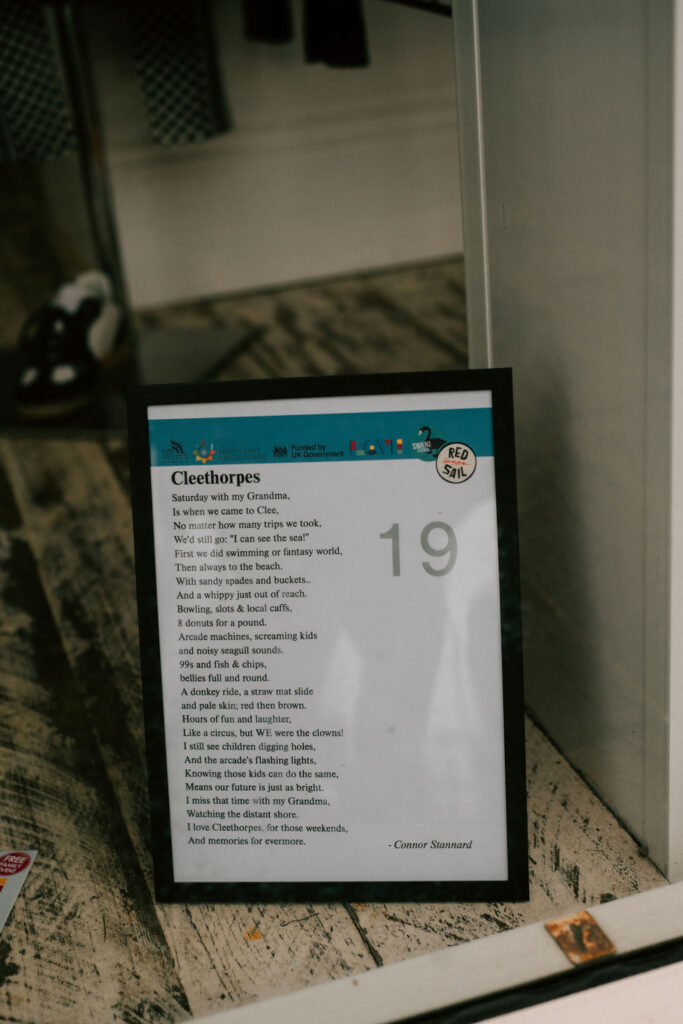 Funded by
UK Government
SWANS
RED
SAIL
Cleethorpes
Saturday with my Grandma,
Is when we came to Clee,
No matter how many trips we took,
We'd still go: "I can see the sea!"
First we did swimming or fantasy world,
Then always to the beach.
With sandy spades and buckets..
And a whippy just out of reach.
Bowling, slots & local caffs,
8 donuts for a pound.
Arcade machines, screaming kids
and noisy seagull sounds.
99s and fish & chips,
bellies full and round.
A donkey ride, a straw mat slide
and pale skin; red then brown.
Hours of fun and laughter,
Like a circus, but WE were the clowns!
I still see children digging holes,
And the arcade's flashing lights,
Knowing those kids can do the same,
Means our future is just as bright.
I miss that time with my Grandma,
Watching the distant shore.
I love Cleethorpes, for those weekends,
And memories for evermore.
- Connor Stannard
19
FREE
FAMILY
EVENT